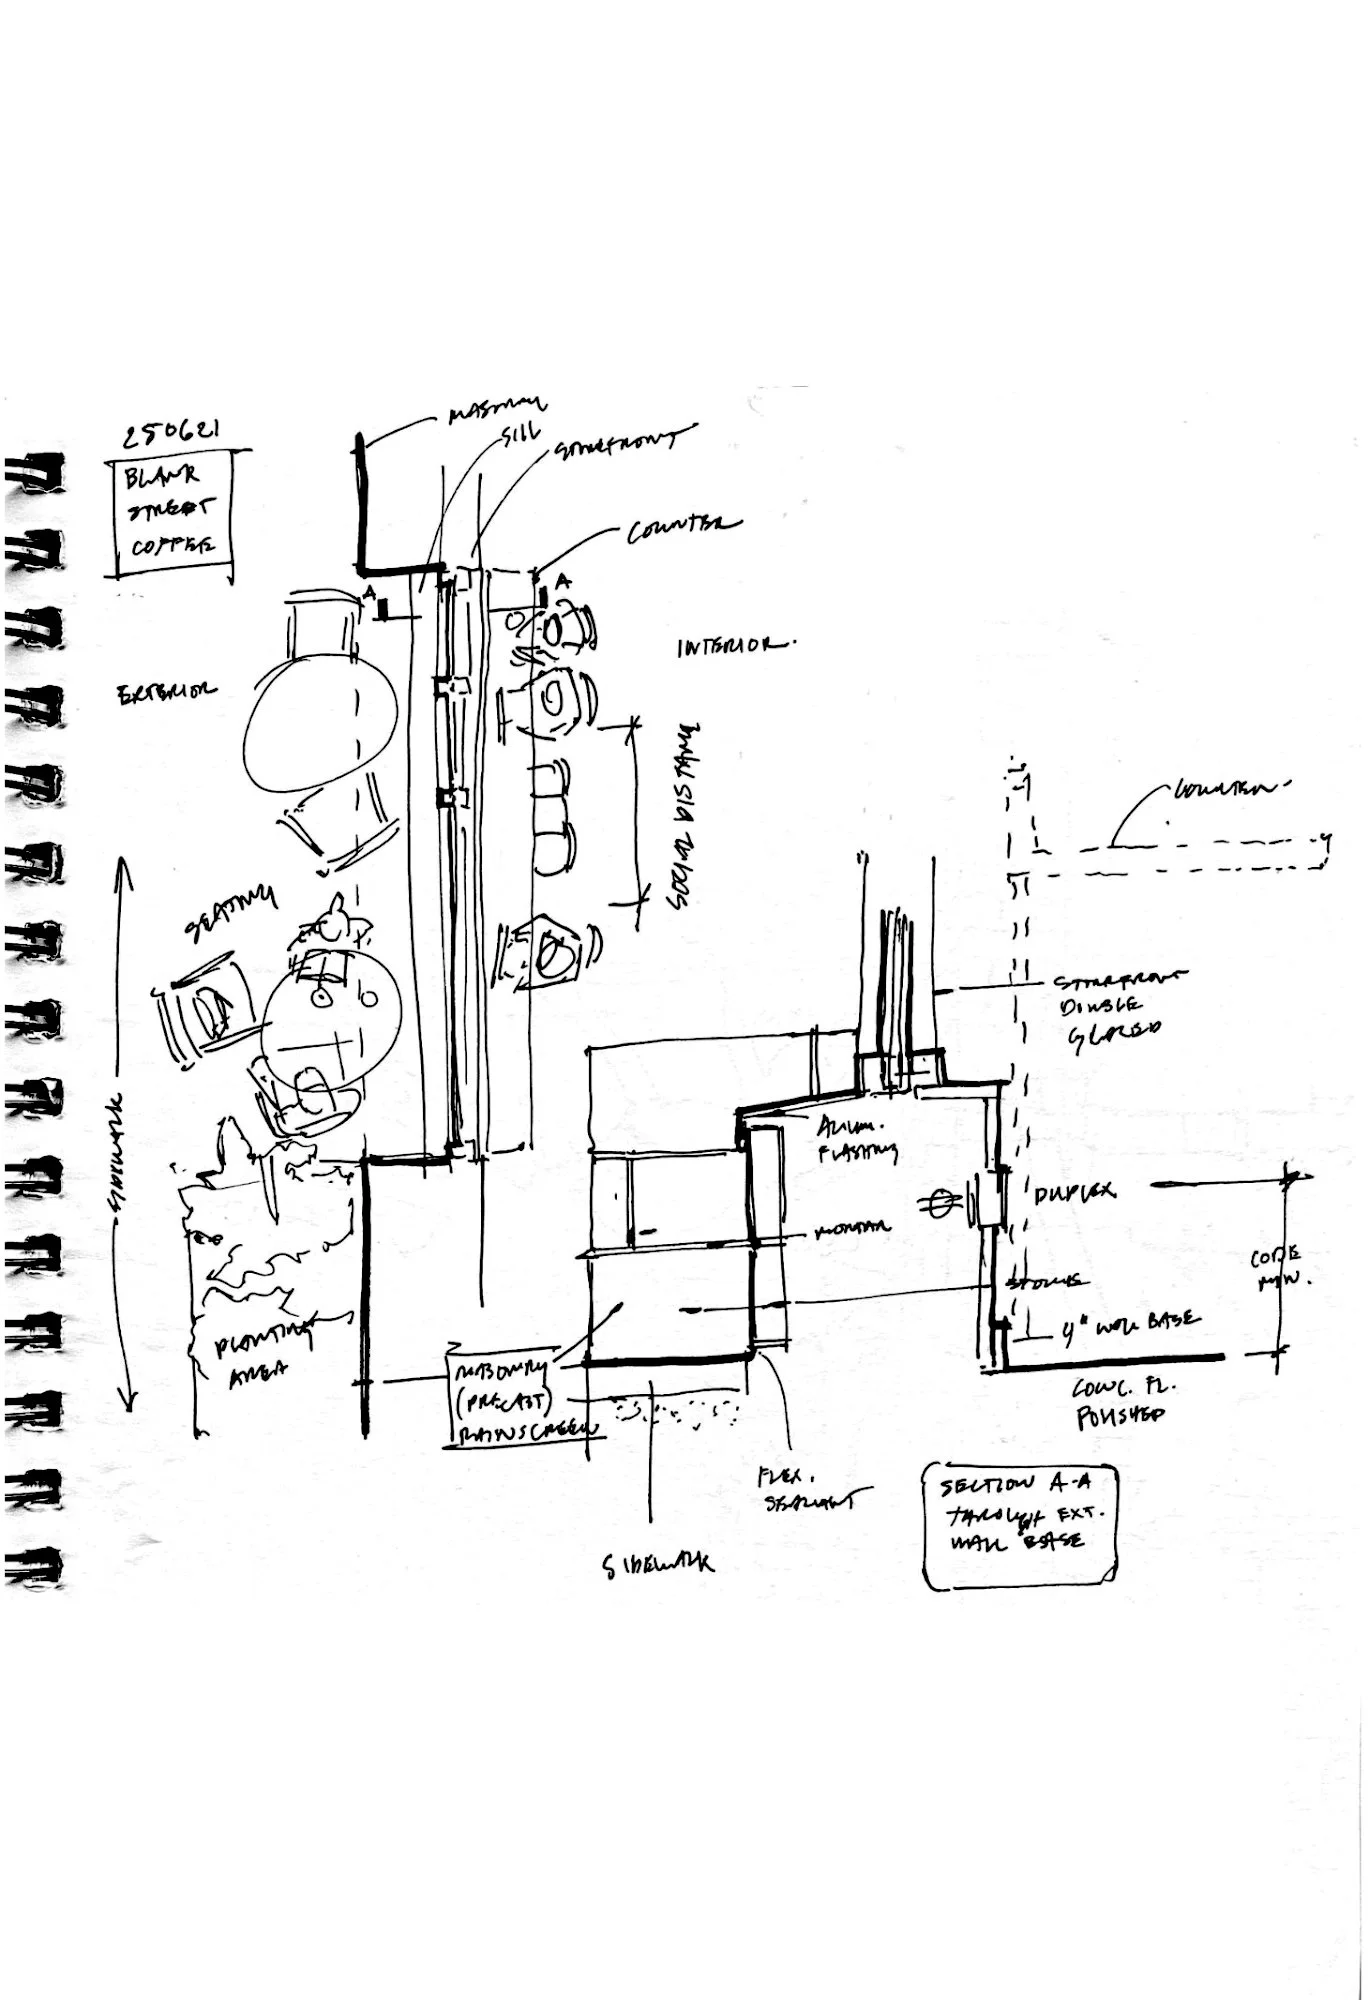 250621
BLANK
STREET
COFFEE
MASONRY
SILL
STOREFRONT
COUNTER
A
A
EXTERIOR
INTERIOR.
SOCIAL DISTANCE
SEATING
SIDEWALK
PLANTING
AREA
COUNTER
STOREFRONT
DOUBLE
GLAZED
ALUM.
FLASHING
DUPLEX
MORTAR
CODE
MIN.
4" WALL BASE
MASONRY
(PRECAST)
RAINSCREEN
CONC. FL.
POLISHED
FLEX.
SEALANT
SIDEWALK
SECTION A-A
THROUGH EXT.
WALL BASE